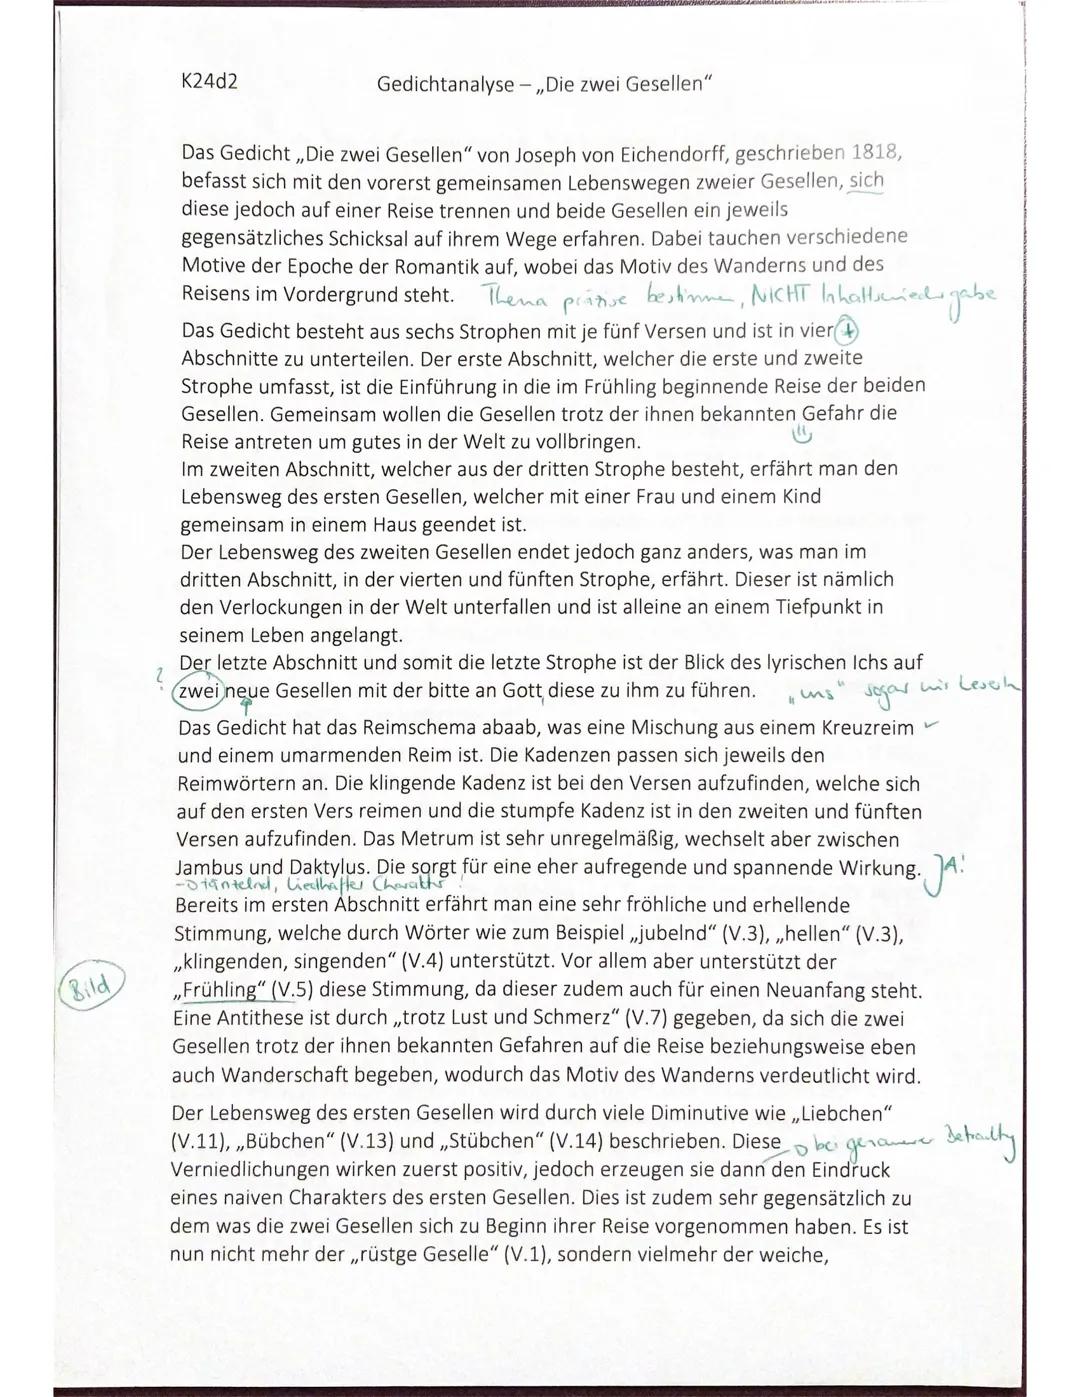 K24d2 Gedichtanalyse – „Die zwei Gesellen“
Das Gedicht „Die zwei Gesellen“ von Joseph von Eichendorff, geschrieben 1818,
befasst sich mit den vorerst gemeinsamen Lebenswegen zweier Gesellen, sich
diese jedoch auf einer Reise trennen und beide Gesellen ein jeweils
gegensätzliches Schicksal auf ihrem Wege erfahren. Dabei tauchen verschiedene
Motive der Epoche der Romantik auf, wobei das Motiv des Wanderns und des
Reisens im Vordergrund steht. Thema präzise bestimmen, NICHT Inhaltswiedergabe
Das Gedicht besteht aus sechs Strophen mit je fünf Versen und ist in vier
Abschnitte zu unterteilen. Der erste Abschnitt, welcher die erste und zweite
Strophe umfasst, ist die Einführung in die im Frühling beginnende Reise der beiden
Gesellen. Gemeinsam wollen die Gesellen trotz der ihnen bekannten Gefahr die
Reise antreten um gutes in der Welt zu vollbringen.
Im zweiten Abschnitt, welcher aus der dritten Strophe besteht, erfährt man den
Lebensweg des ersten Gesellen, welcher mit einer Frau und einem Kind
gemeinsam in einem Haus geendet ist.
Der Lebensweg des zweiten Gesellen endet jedoch ganz anders, was man im
dritten Abschnitt, in der vierten und fünften Strophe, erfährt. Dieser ist nämlich
den Verlockungen in der Welt unterfallen und ist alleine an einem Tiefpunkt in
seinem Leben angelangt.
Der letzte Abschnitt und somit die letzte Strophe ist der Blick des lyrischen Ichs auf
? zwei neue Gesellen mit der bitte an Gott, diese zu ihm zu führen. „uns“ sogar wir Leser
Das Gedicht hat das Reimschema abaab, was eine Mischung aus einem Kreuzreim ✓
und einem umarmenden Reim ist. Die Kadenzen passen sich jeweils den
Reimwörtern an. Die klingende Kadenz ist bei den Versen aufzufinden, welche sich
auf den ersten Vers reimen und die stumpfe Kadenz ist in den zweiten und fünften
Versen aufzufinden. Das Metrum ist sehr unregelmäßig, wechselt aber zwischen
Jambus und Daktylus. Die sorgt für eine eher aufregende und spannende Wirkung. JA!
→ tänzelnd, liedhafter Charakter!
Bereits im ersten Abschnitt erfährt man eine sehr fröhliche und erhellende
Stimmung, welche durch Wörter wie zum Beispiel „jubelnd“ (V.3), „hellen“ (V.3),
„klingenden, singenden“ (V.4) unterstützt. Vor allem aber unterstützt der
Bild
„Frühling“ (V.5) diese Stimmung, da dieser zudem auch für einen Neuanfang steht.
Eine Antithese ist durch „trotz Lust und Schmerz“ (V.7) gegeben, da sich die zwei
Gesellen trotz der ihnen bekannten Gefahren auf die Reise beziehungsweise eben
auch Wanderschaft begeben, wodurch das Motiv des Wanderns verdeutlicht wird.
Der Lebensweg des ersten Gesellen wird durch viele Diminutive wie „Liebchen“
(V.11), „Bübchen“ (V.13) und „Stübchen“ (V.14) beschrieben. Diese → bei genauerer Betrachtung
Verniedlichungen wirken zuerst positiv, jedoch erzeugen sie dann den Eindruck
eines naiven Charakters des ersten Gesellen. Dies ist zudem sehr gegensätzlich zu
dem was die zwei Gesellen sich zu Beginn ihrer Reise vorgenommen haben. Es ist
nun nicht mehr der „rüstge Geselle“ (V.1), sondern vielmehr der weiche,